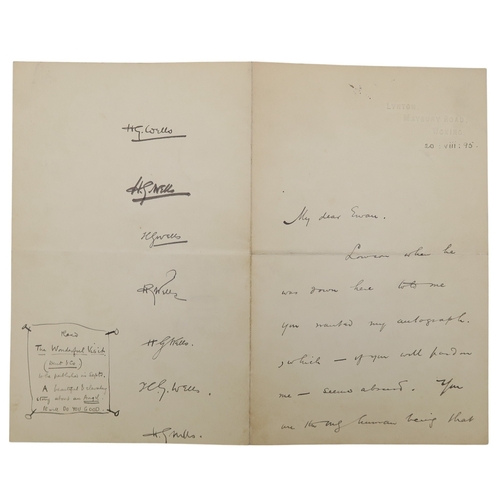 H.G. Wells
H.G. Wells
H.G. Wells
H.G. Wells
H.G. Wells.
H.G. Wells.
H.G. Wells.
Read
The Wonderful Visit
(Dent & Co)
to be published in Sept.
A beautiful &
story about an Angel
It will DO YOU GOOD
20 : VIII : 95
My dear Ewan.
Lowson when he
was down here told me
you wanted my autograph.
, which — if you will pardon
me — seems absurd. You
are the only human being that